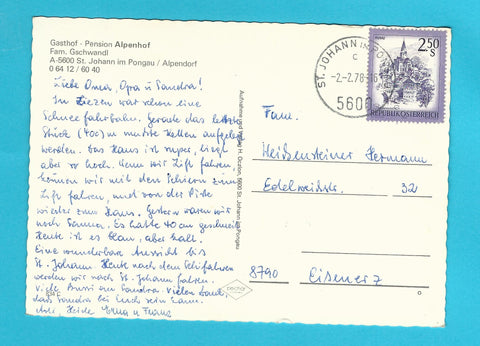 Gasthof - Pension Alpenhof
Fam. Gschwandl
A-5600 St. Johann im Pongau / Alpendorf
0 64 12 / 60 40
Liebe Oma, Opa u Sandra!
In Liezen war schon eine
Schneefahrbahn. Gerade das letzte
Stück (400) m mußte Ketten aufgelegt
werden. Das Haus ist super, liegt
aber so hoch. Wenn wir Lift fahren,
können wir mit den Schiern zum
Lift fahren, und von der Piste
wieder zum Haus. Gestern waren wir
noch Es hatte 40 cm geschneit
Heute ist es blau, aber kalt.
Eine wunderbare Aussicht bis
St. Johann. Heute nach dem Schifahren
werden wir nach St. Johann fahren.
Viele Bussi an Sandra. Vielen Dank,
dass Sandra bei Euch sein kann.
Heide Erna u Franz
Aufnahme und Verlag H. 5600 St. Johann im Pongau
ST. JOHANN IM PONGAU
c
-2.-2.78-16
5600
2,50
S
REPUBLIK ÖSTERREICH
Fam.
Heißensteiner Hermann
Edelweißstr. 32
8790 Eisenerz